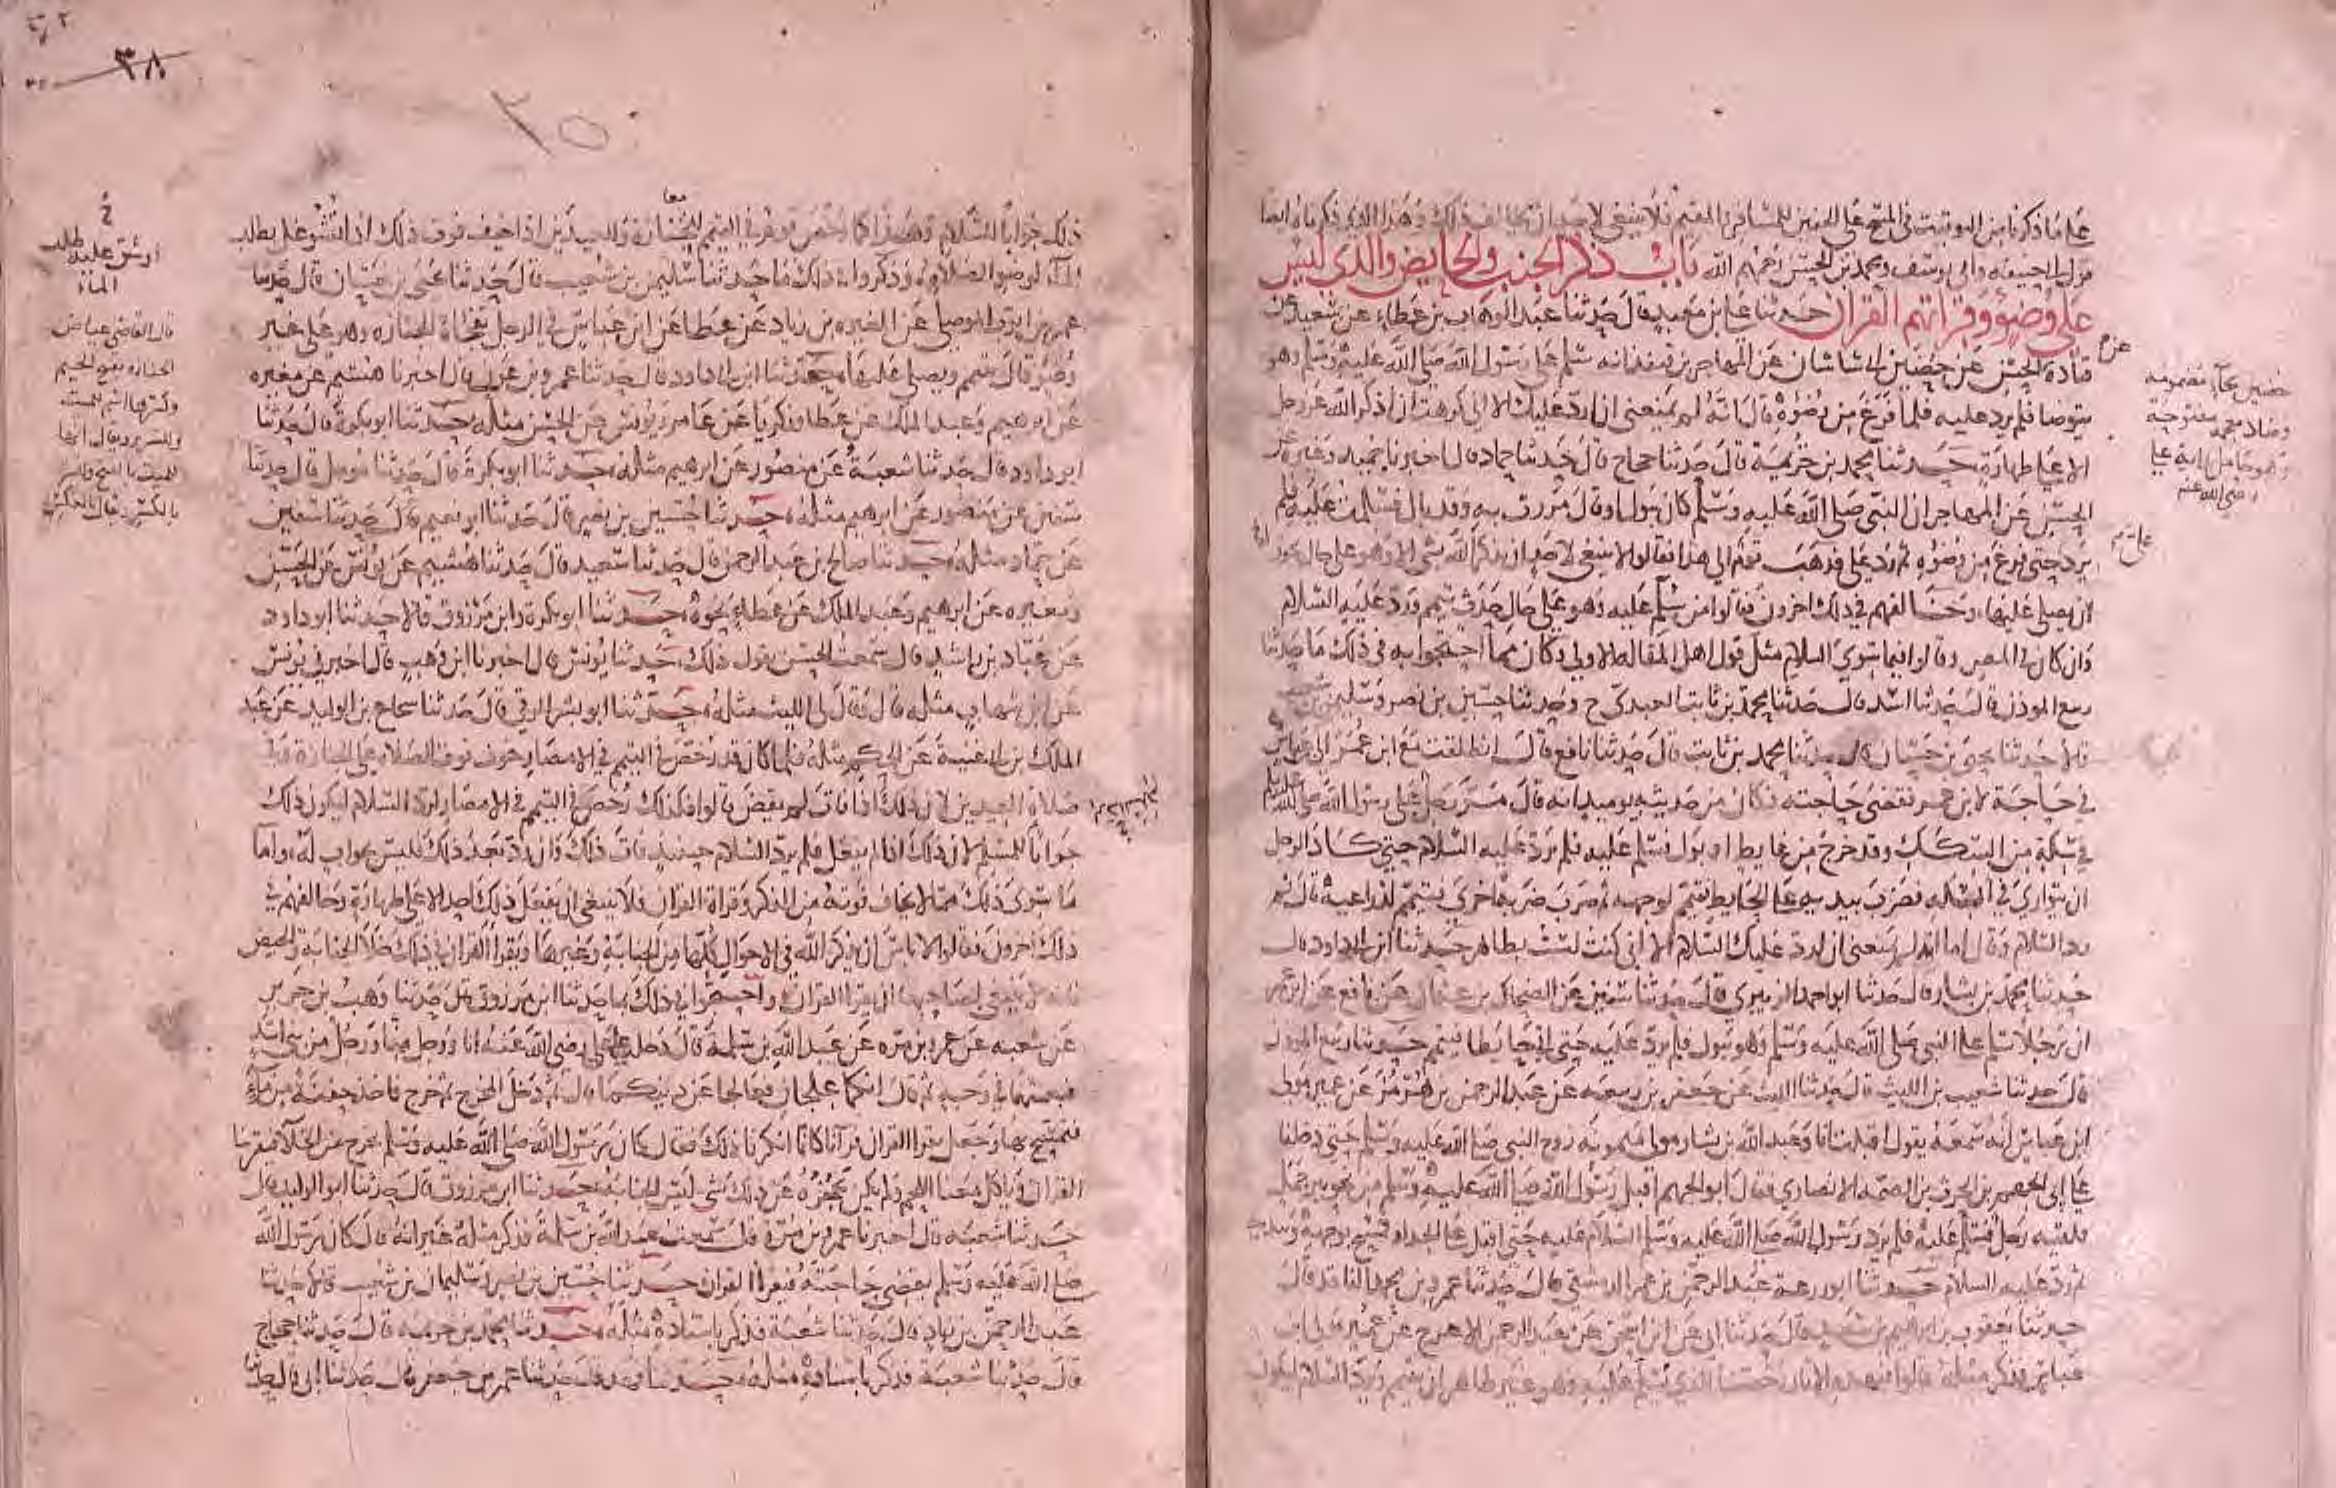 على ما ذكرنا من التوقيت في المسح على الخفين للمسافر والمقيم فلا ينبغي لاحد ان يخالف ذلك وهذا الذي ذكرناه ايضا
قول ابي حنيفه وابي يوسف ومحمد بن الحسن رحمهم الله باب ذكر الجنب والحايض والذي ليس
على وضوء وقراتهم القران حدثنا علي بن معبد قال حدثنا عبد الوهاب بن عطاء عن شعبد عن
قتاده عن الحسن عن حضين ابي ساسان عن المهاجر بن قنفذ انه سلم على رسول الله صلى الله عليه وسلم وهو
يتوضا فلم يرد عليه فلما فرغ من وضوئه قال انه لم يمنعني ان ارد عليك الا اني كرهت ان اذكر الله عز وجل
الا على طهارة حدثنا محمد بن خزيمة قال حدثنا حجاج قال حدثنا حماد قال اخبرنا حميد وغيره عن
الحسن عن المهاجر ان النبي صلى الله عليه وسلم كان يبول او قال مررت به وقد بال فسلمت عليه فلم
يرد حتى فرغ من وضوئه ثم رد علي فذهب قوم الى هذا فقالوا لا ينبغي لاحد ان يذكر الله بشي الا وهو على حال يجوز
ان يصلي عليها وخالفهم في ذلك اخرون فقالوا من سلم عليه وهو على حال حدث تيمم ورد عليه السلام
وان كان في المصر وقالوا فيما سوى السلام مثل قول اهل المقاله الاولى وكان مما احتجوا به في ذلك ما حدثنا
ربيع الموذن قال حدثنا اسد قال حدثنا محمد بن ثابت العبدي ح وحدثنا حسين بن نصر وسليمن بن شعيب
قالا حدثنا يحيى بن حسان قال حدثنا محمد بن ثابت قال حدثنا نافع قال انطلقت مع ابن عمر الى ابن عباس
في حاجة لابن عمر فقضى حاجته فكان من حديثه يوميذ انه قال مر رجل على رسول الله صلى الله عليه وسلم
في سكة من السكك وقد خرج من غايط او بول فسلم عليه فلم يرد عليه السلام حتى كاد الرجل
ان يتوارى في السكه فضرب بيديه على الحايط فتيمم لوجهه ثم ضرب ضربة اخرى فتيمم لذراعيه قال ثم
رد السلام وقال اما انه لم يمنعني ان ارد عليك السلام الا اني كنت لست بطاهر حدثنا ابن ابي داود قال
حدثنا محمد بن بشار قال حدثنا ابو احمد الزبيري قال حدثنا سفين عن الضحاك بن عثمان عن نافع عن ابن عمر
ان رجلا سلم على النبي صلى الله عليه وسلم وهو يبول فلم يرد عليه حتى اتى حايطا فتيمم حدثنا ربيع الموذن
قال حدثنا شعيب بن الليث قال حدثنا الليث عن جعفر بن ربيعه عن عبد الرحمن بن هرمز عن عمير مولى
ابن عباس انه سمعه يقول اقبلت انا وعبد الله بن يسار مولى ميمونه زوج النبي صلى الله عليه وسلم حتى دخلنا
على ابي الجهيم بن الحرث بن الصمه الانصاري فقال ابو الجهيم اقبل رسول الله صلى الله عليه وسلم من نحو بير جمل
فلقيه رجل فسلم عليه فلم يرد رسول الله صلى الله عليه وسلم السلام عليه حتى اقبل على الجدار فمسح بوجهه ويديه
ثم رد عليه السلام حدثنا ابو زرعة عبد الرحمن بن عمرو الدمشقي قال حدثنا عمرو بن محمد الناقد قال
حدثنا يعقوب بن ابراهيم بن سعد قال حدثنا ابي عن ابن اسحق عن عبد الرحمن الاعرج عن عمير مولى ابن
عباس فذكر مثله قالوا فبهذه الاثار رخصنا للذي يسلم عليه وهو غير طاهر ان يتيمم ويرد السلام ليكون
عن
حضين بحاء مضمومه
وضاد معجمه مفتوحة
وهو حامل راية علي
رضي الله عنه
ذلك جوابا للسلام وهذا كما رخص قوم في التيمم للجنازة وللعيدين اذا خيف فوت ذلك اذا تشوغل بطلب
الماء لوضو الصلاة وذكروا في ذلك ما حدثنا سليمن بن شعيب قال حدثنا يحيى بن حسان قال حدثنا
عمر بن ايوب الموصلي عن المغيره بن زياد عن عطا عن ابن عباس في الرجل تفجاه الجنازه وهو على غير
وضو قال يتيمم ويصلي عليها حدثنا ابن ابي داود قال حدثنا عمرو بن عون قال اخبرنا هشيم عن مغيره
عن ابرهيم وعبد الملك عن عطا وزكريا عن عامر ويونس عن الحسن مثله حدثنا ابو بكرة قال حدثنا
ابو داود قال حدثنا شعبة عن منصور عن ابرهيم مثله حدثنا ابو بكرة قال حدثنا مومل قال حدثنا
سفين عن منصور عن ابرهيم مثله حدثنا حسين بن نصر قال حدثنا ابو نعيم قال حدثنا سفين
عن حماد مثله حدثنا صالح بن عبد الرحمن قال حدثنا سعيد قال حدثنا هشيم عن يونس عن الحسن
ومغيره عن ابرهيم وعبد الملك عن عطاء نحوه حدثنا ابو بكرة وابن مرزوق قالا حدثنا ابو داود
عن عباد بن راشد قال سمعت الحسن يقول ذلك حدثنا يونس قال اخبرنا ابن وهب قال اخبرني يونس
عن ابن شهاب مثله قال وقال لي الليث مثله حدثنا ابو بشر الرقي قال حدثنا شجاع بن الوليد عن عبد
الملك بن ابي غنية عن الحكم مثله فلما كان قد رخص في التيمم في الامصار خوف فوت الصلاة على الجنازة وفي
صلاة العيدين لان ذلك اذا فات لم يقض قالوا فكذلك رخص في التيمم في الامصار لرد السلام ليكون ذلك
جوابا للمسلم لان ذلك اذا لم يفعل فلم يرد السلام حينيذ فات ذلك وان رد بعد ذلك فليس بجواب له واما
ما سوى ذلك مما لا يخاف فوته من الذكر وقراة القران فلا ينبغي ان يفعل ذلك احد الا على طهارة وخالفهم في
ذلك اخرون فقالوا لا باس ان يذكر الله في الاحوال كلها من الجنابة وغيرها ويقرا القران في ذلك خلا الجنابة والحيض
فانه لا ينبغي لصاحبهما ان يقرا القران واحتجوا في ذلك بما حدثنا ابن مرزوق قال حدثنا وهب بن جرير
عن شعبه عن عمرو بن مره عن عبد الله بن سلمة قال دخل على علي رضي الله عنه انا ورجل منا ورجل من بني اسد
فبعثهما في وجه ثم قال انكما علجان فعالجا عن دينكما قال ثم دخل المخرج ثم خرج فاخذ حفنة من ماء
فتمسح بها وجعل يقرا القران فرآنا كانا انكرنا ذلك فقال كان رسول الله صلى الله عليه وسلم يخرج من الخلا فيقرينا
القران وياكل معنا اللحم ولم يكن يحجزه عن ذلك شي ليس الجنابة حدثنا ابن مرزوق قال حدثنا ابو الوليد قال
حدثنا شعبه قال اخبرنا عمرو بن مرة قال سمعت عبد الله بن سلمة فذكر مثله غير انه قال كان رسول الله
صلى الله عليه وسلم يقضي حاجته فيقرا القران حدثنا حسين بن نصر وسليمان بن شعيب قالا حدثنا
عبد الرحمن بن زياد قال حدثنا شعبة فذكر باسناده مثله حدثنا محمد بن خزيمه قال حدثنا حجاج
قال حدثنا شعبة فذكر باسناده مثله حدثنا فهد قال حدثنا عمر بن حفص قال حدثنا ابي قال حدثنا
معا
خ
او شق عليه طلب
الماء
قال القاضي عياض
الجنازه بفتح الجيم
وكسرها اسم للميت
والسرير ويقال انها
للميت بالفتح وللسرير
بالكسر ويقال بالعكس
٣٨